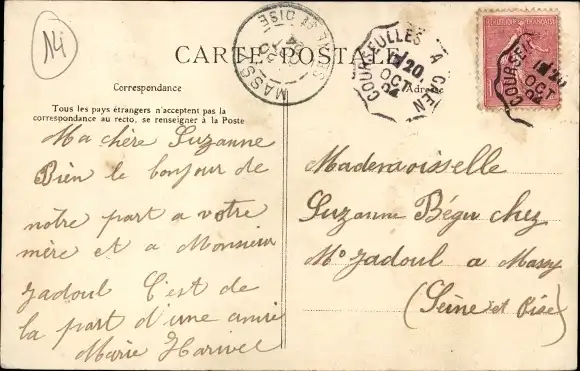 14
CARTE POSTALE
MASSY SNE ET OISE
20
04
COURSEULLES A CAEN
20
OCT
04
COURSEUL
20
OCT
04
Correspondance
Adresse
Tous les pays étrangers n'acceptent pas la
correspondance au recto, se renseigner à la Poste
Ma chère Suzanne
Bien le bonjour de
notre part a votre
mère et a Monsieur
Jadoul C'est de
la part d'une amie
Marie
Mademoisselle
Suzanne Bégu chez
Mr Jadoul a Massy
(Seine et Oise)